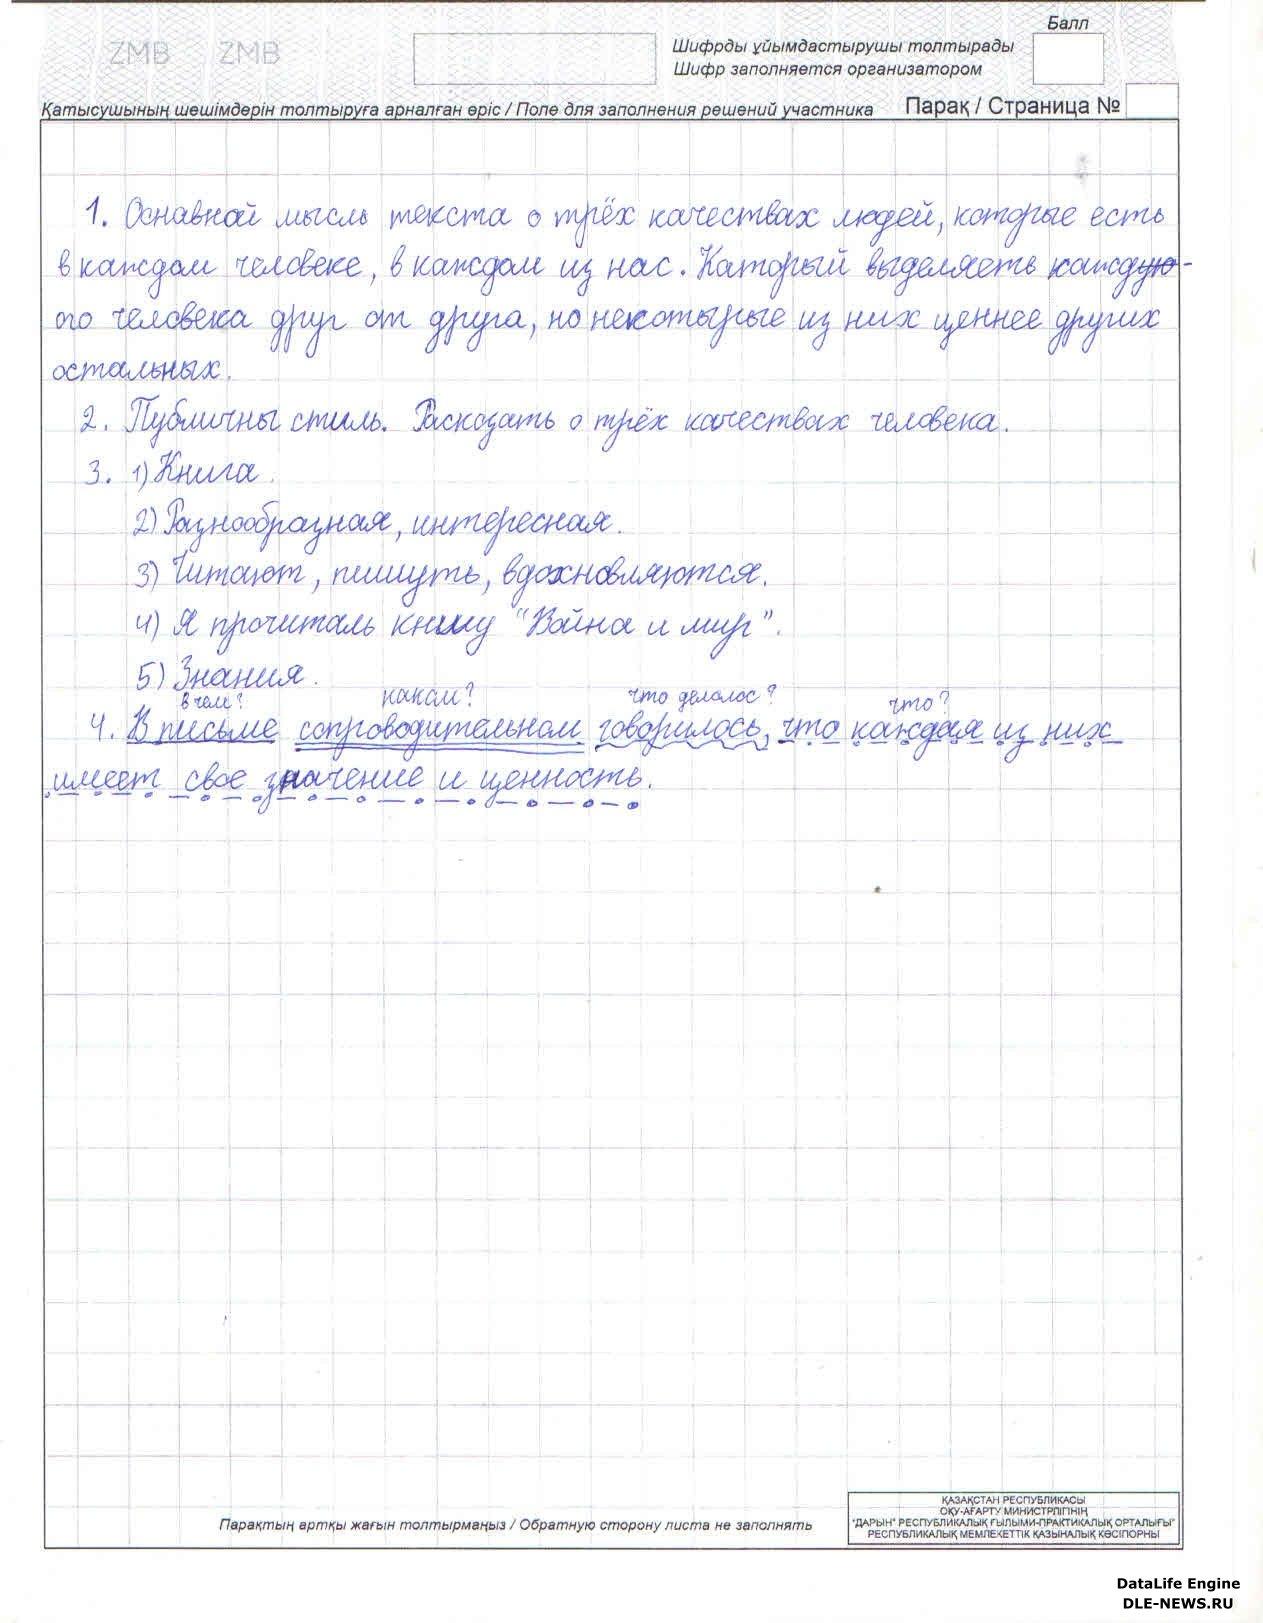 ZMB ZMB
Балл
Шифрды ұйымдастырушы толтырады
Шифр заполняется организатором
Қатысушының шешімдерін толтыруға арналған өріс / Поле для заполнения решений участника Парақ / Страница №
1. Оснавной мысль текста о трёх качествах людей, которые есть
в каждом человеке, в каждом из нас. Каторый выделяеть каждую-
ого человека друг от друга, но некотырые из них ценнее других
остальных.
2. Публичны стиль. Расказать о трёх качествах человека.
3. 1) Книга.
2) Разнообразная, интересная.
3) Читают, пишуть, вдохновляются.
4) Я прочиталь книгу "Война и мир".
5) Знания.
в чем? каком? что делолос? что?
4. В письме сопроводительном говорилось, что каждая из них
имеет свое значение и ценность.
Парақтың артқы жағын толтырмаңыз / Обратную сторону листа не заполнять
ҚАЗАҚСТАН РЕСПУБЛИКАСЫ
ОҚУ-АҒАРТУ МИНИСТРЛІГІНІҢ
"ДАРЫН" РЕСПУБЛИКАЛЫҚ ҒЫЛЫМИ-ПРАКТИКАЛЫҚ ОРТАЛЫҒЫ"
РЕСПУБЛИКАЛЫҚ МЕМЛЕКЕТТІК ҚАЗЫНАЛЫҚ КӘСІПОРНЫ
DataLife Engine
DLE-NEWS.RU